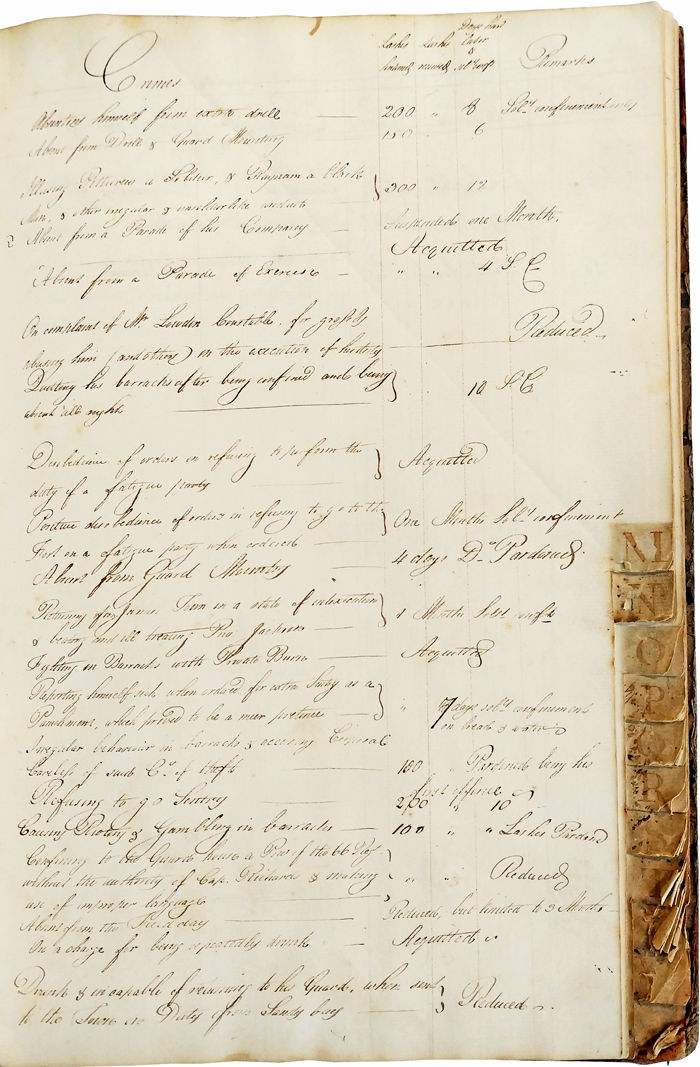 Crimes
Lashes Lashes Days hard labor & sol. conft Remarks
Absenting himself from extra drill 200 " 8 Sol.y confinement only
Absent from Drill & Guard Mounting 150 " 6
Illusing a Soldier, & a Black 300 " 12
Man, & other irregular & unsoldierlike conduct
Absent from a Parade of his Company Suspended one Month.
Acquitted
Absent from a Parade of Exercise " " 4 S. C
On complaint of Mr Lowden Constable, for grossly Reduced
abusing him (and others) in the execution of his duty
Quitting his barracks after being confined and being 10 S. C
absent all night
Disobedience of orders in refusing to perform the Acquitted
duty of a fatigue party
Positive disobedience of orders in refusing to go to the One Month Sol.y confinement
Fort on a fatigue party when ordered
Absent from Guard Mounting 4 days Do Pardoned
of James Town in a state of intoxication 1 Month Sol.y conft
& beating and ill treating Jackson
Fighting in Barracks with Private Burn Acquitted
Reporting himself sick when ordered for extra duty as a " 7 days sol.y confinement
Punishment, which proved to be a meer pretence on bread & water
Irregular behaviour in barracks & accusing Corporal
Careless of said Co. of theft 150 " Pardoned being his
first offence
Refusing to go Sentry 200 " 10
Causing Rioting & Gambling in barracks 100 " " Lashes Pardoned
Confining to the Guard house a of the 66 Regt
without the authority of Cap. & making " " Reduced
use of improper language
Absent from the Field day Reduced, but limited to 3 Months
On a charge for being repeatedly drunk Acquitted
Drunk & incapable of returning to his Guard, when sent Reduced
to the Town on Duty from Sandy bay
M
N
O
P
Q
R